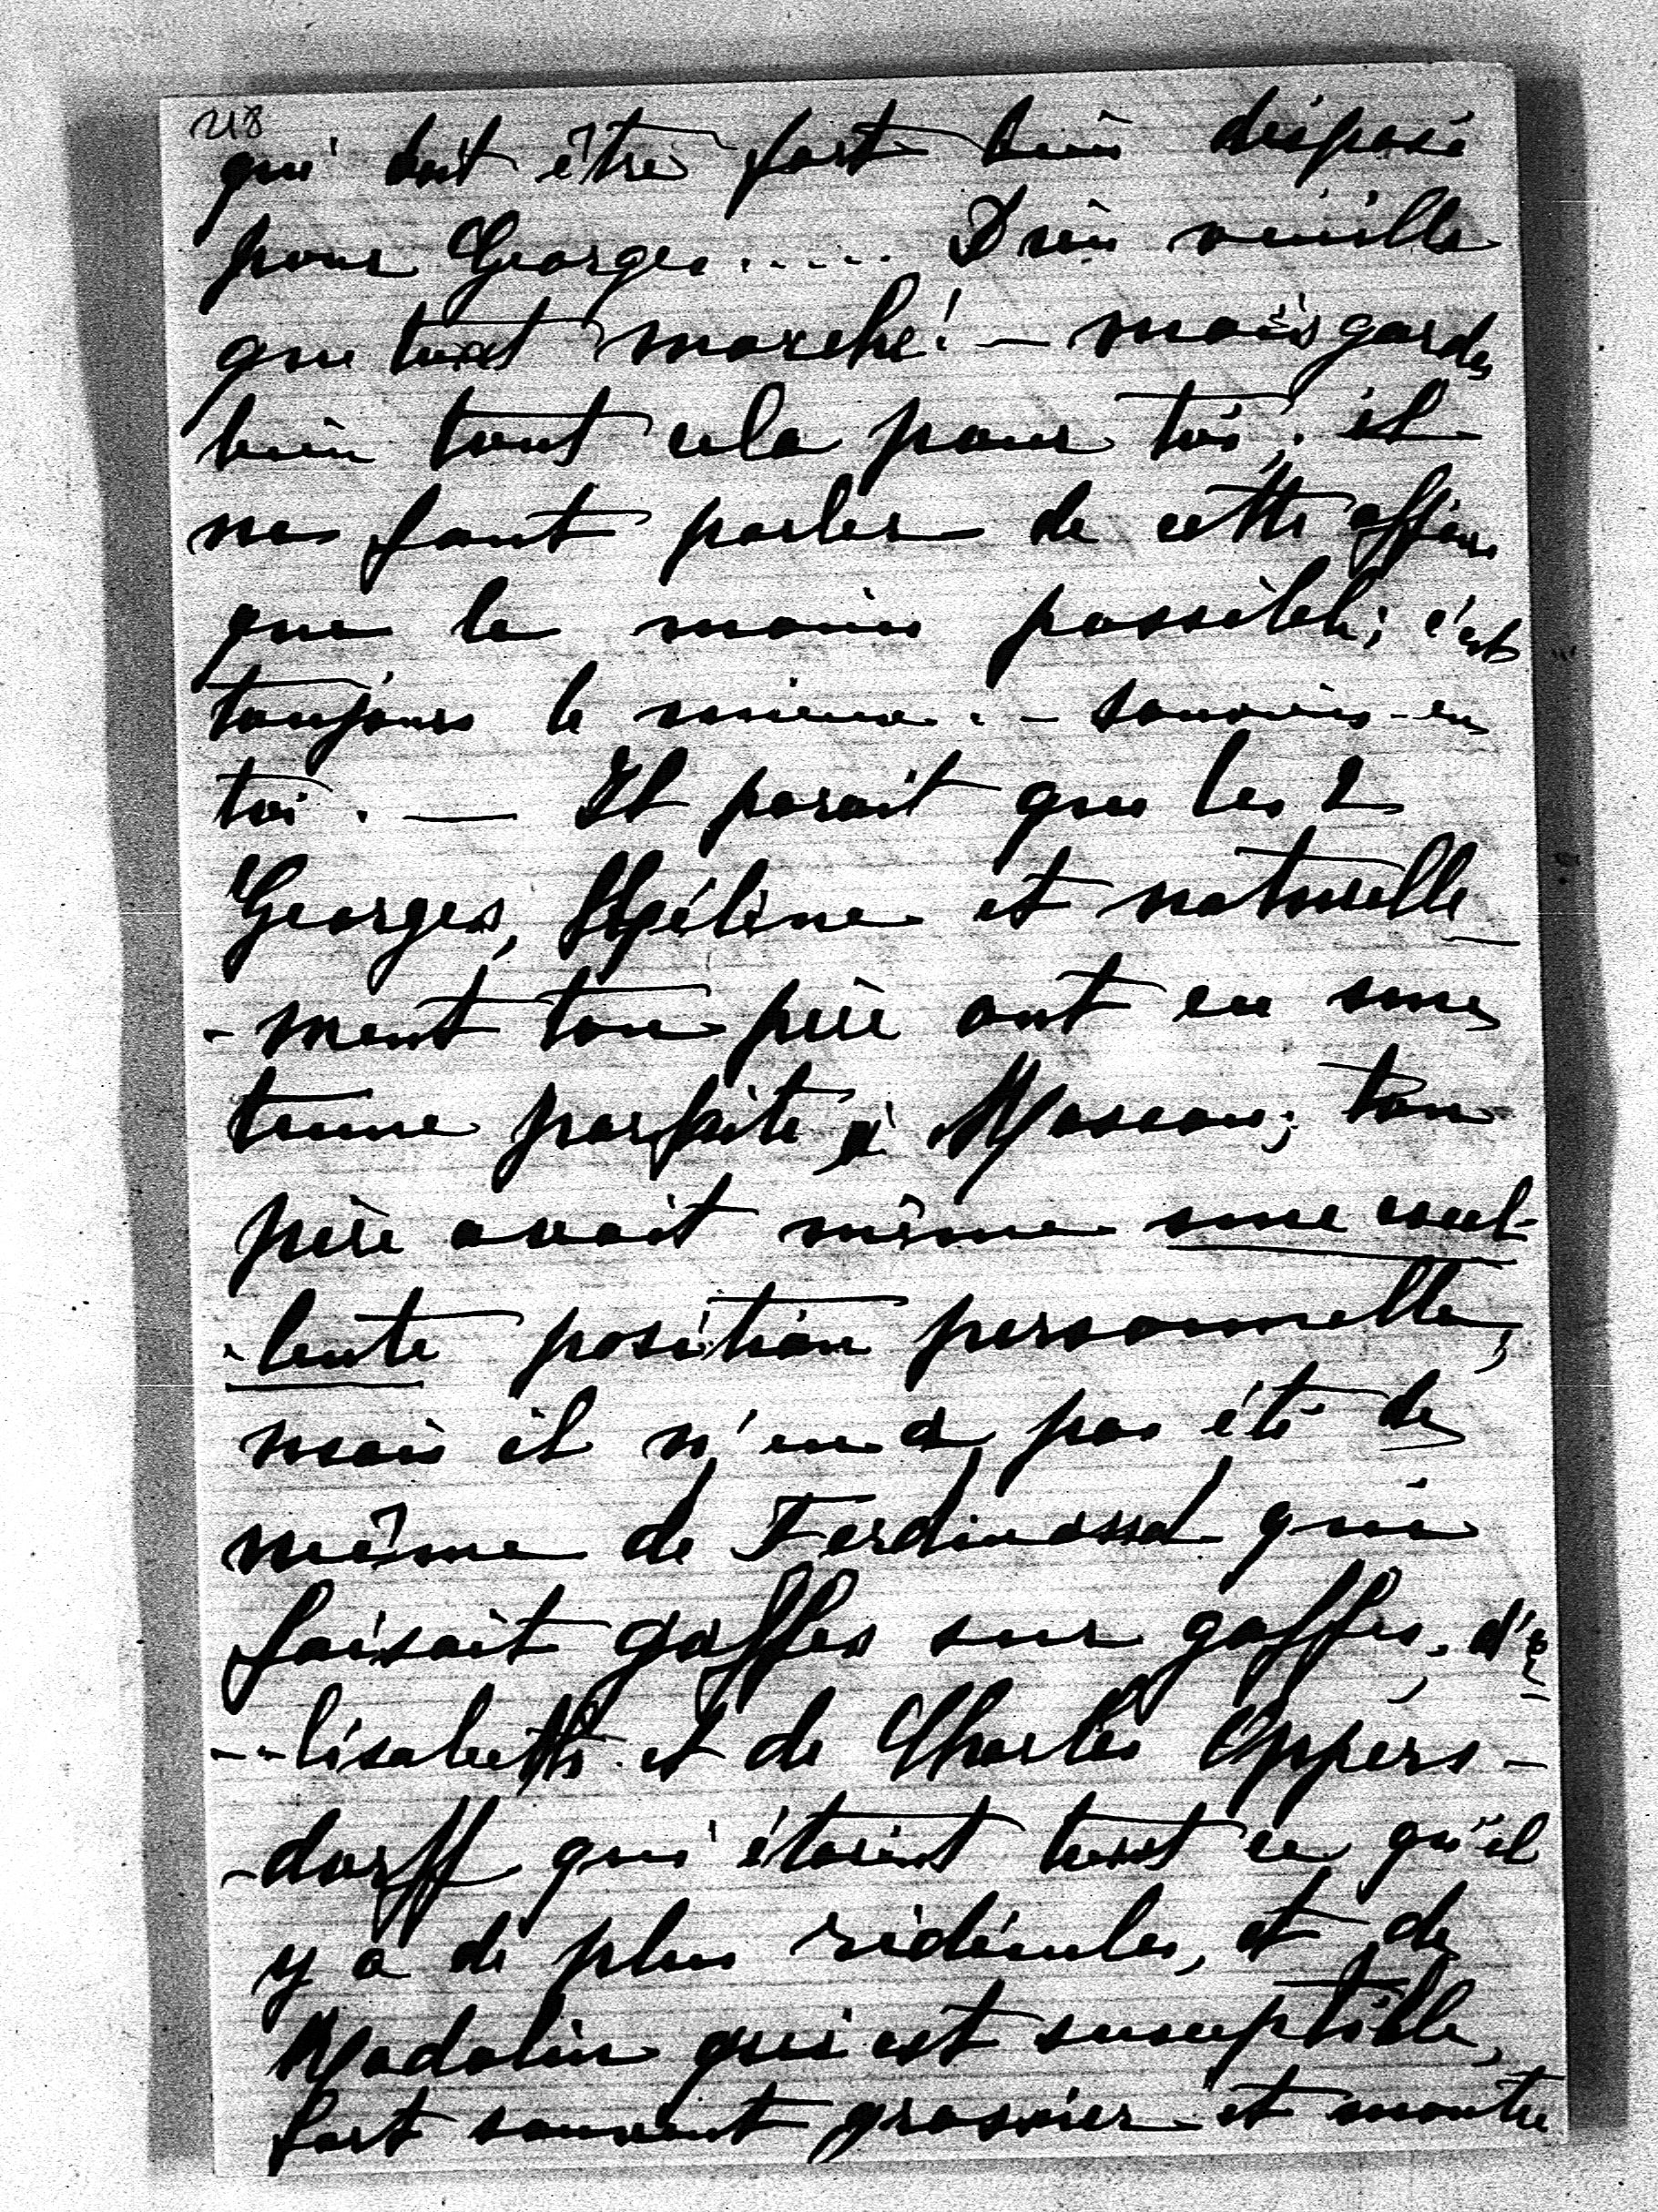 218
qui doit être fort bien disposé
pour Georges..... Dieu veuille
que tout marche! — mais gardes
bien tout cela pour toi; il
ne faut parler de cette affaire
que le moins possible; c'est
toujours le mieux. — souviens-en
toi. — Il parait que les 2
Georges, Hélène et naturelle
-ment ton père ont eu une
tenue parfaite à Moscou; ton
père avait même une excel-
-lente position personnelle,
mais il n'en a pas été de
même de Ferdinand qui
faisait gaffes sur gaffes, d'E
--lisabeth et de Charles Oppers-
-dorff qui étaient tout ce qu'il
y a de plus ridicules, et de
Madolin qui est susceptible,
fort souvent grossier et montre